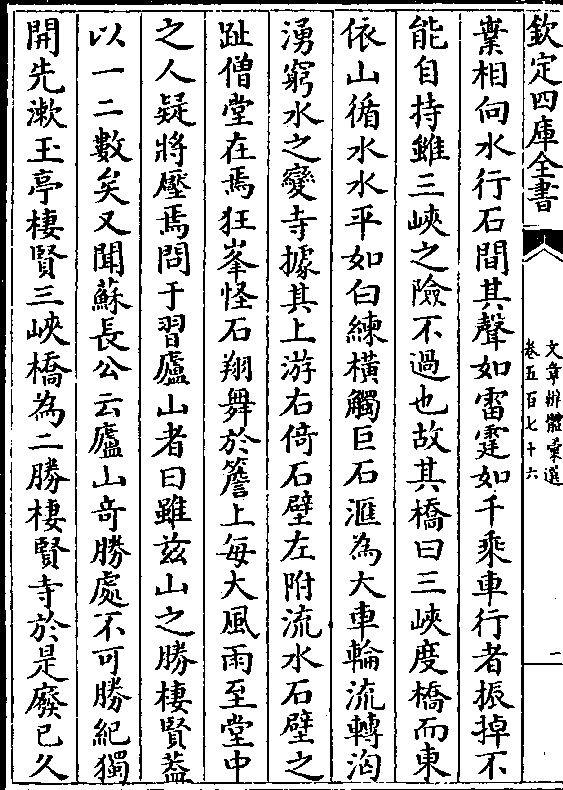 欽定四庫全書
文章辨體彙選
卷五百七十六
一
棄相向水行石間其聲如雷霆如千乘車行者振掉不
能自持雖三峽之險不過也故其橋曰三峽度橋而東
依山循水水平如白練橫觸巨石滙為大車輪流轉洶
湧窮水之變寺據其上游右倚石壁左附流水石壁之
趾僧堂在焉狂峯怪石翔舞於簷上每大風雨至堂中
之人疑將壓焉問于習廬山者曰雖茲山之勝棲賢蓋
以一二數矣又聞蘇長公云廬山奇勝處不可勝紀獨
開先漱玉亭棲賢三峽橋為二勝棲賢寺於是廢已久